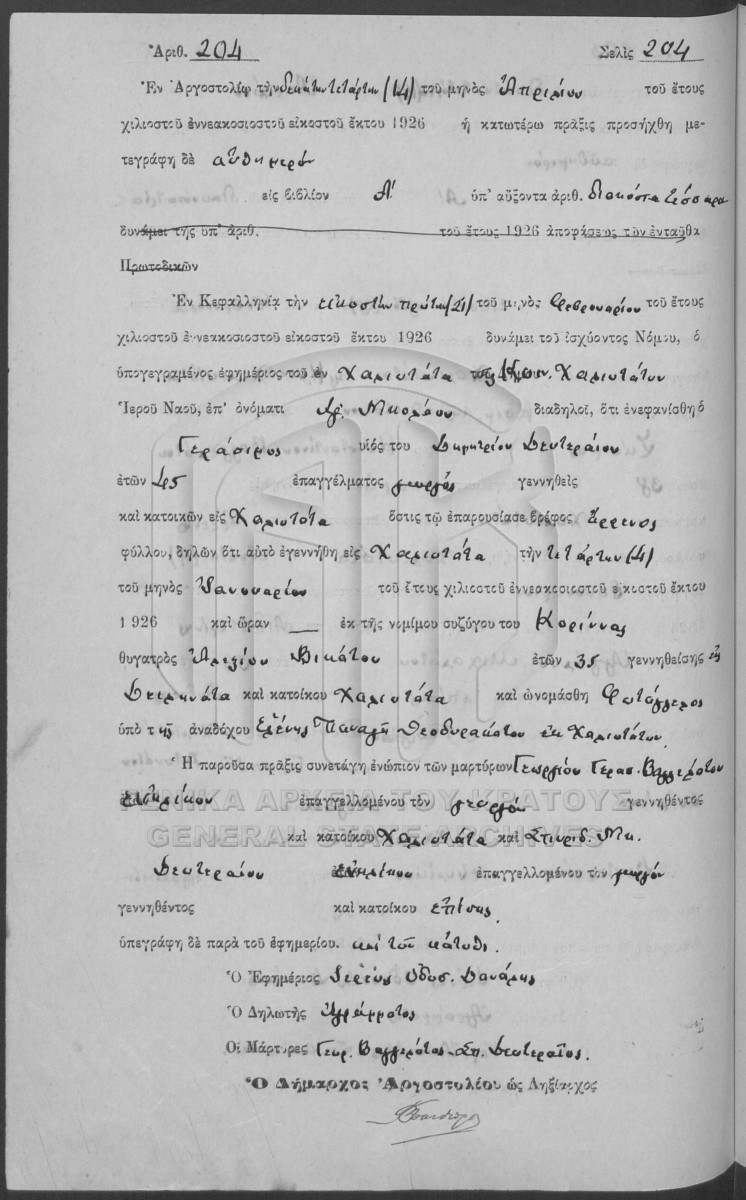 Ἀριθ. 204 Σελὶς 204
Ἐν Ἀργοστολίῳ τὴν δεκάτην τετάρτην (14) τοῦ μηνὸς Ἀπριλίου τοῦ ἔτους
χιλιοστοῦ ἐννεακοσιοστοῦ εἰκοστοῦ ἕκτου 1926 ἡ κατωτέρω πρᾶξις προσήχθη με-
τεγράφη δὲ αὐθημερόν
εἰς βιβλίον Α' ὑπ' αὔξοντα ἀριθ. διακόσια τέσσαρα
δυνάμει τῆς ὑπ' ἀριθ. τοῦ ἔτους 1926 ἀποφάσεως τῶν ἐνταῦθα
Πρωτοδικῶν
Ἐν Κεφαλληνίᾳ τὴν εἰκοστὴν πρώτην (21) τοῦ μηνὸς Φεβρουαρίου τοῦ ἔτους
χιλιοστοῦ ἐννεακοσιοστοῦ εἰκοστοῦ ἕκτου 1926 δυνάμει τοῦ ἰσχύοντος Νόμου, ὁ
ὑπογεγραμένος ἐφημέριος τοῦ ἐν Χαλιωτάτα τῆς Κοιν. Χαλιωτάτων
Ἱεροῦ Ναοῦ, ἐπ' ὀνόματι Ἁγ. Νικολάου διαδηλοῖ, ὅτι ἐνεφανίσθη ὁ
Γεράσιμος υἱός του Δημητρίου Δευτεραίου
ἐτῶν 45 ἐπαγγέλματος γεωργός γεννηθεὶς
καὶ κατοικῶν εἰς Χαλιωτάτα ὅστις τῷ ἐπαρουσίασε βρέφος ἄρρενος
φύλλου, δηλῶν ὅτι αὐτὸ ἐγεννήθη εἰς Χαλιωτάτα τὴν τετάρτην (4)
τοῦ μηνὸς Ἰανουαρίου τοῦ ἔτους χιλιοστοῦ ἐννεακοσιοστοῦ εἰκοστοῦ ἕκτου
1926 καὶ ὥραν — ἐκ τῆς νομίμου συζύγου του Κορίννας
θυγατρὸς Ἀλεξίου Βικάτου ἐτῶν 35 γεννηθείσης εἰς
Δειλινάτα καὶ κατοίκου Χαλιωτάτα καὶ ὠνομάσθη Φωτάγγελος
ὑπὸ τῆς ἀναδόχου Ἑλένης Παναγῆ Θεοδωράτου ἐκ Χαλιωτάτων
Ἡ παροῦσα πρᾶξις συνετάγη ἐνώπιον τῶν μαρτύρων Γεωργίου Γερασ. Βαγγελάτου
ἐνηλίκου ἐπαγγελλομένου τὸν γεωργόν γεννηθέντος
ΓΕΝΙΚΑ ΑΡΧΕΙΑ ΤΟΥ ΚΡΑΤΟΥΣ
GENERAL STATE ARCHIVES
καὶ κατοίκου Χαλιωτάτα καὶ Σπυριδ. Νικ.
Δευτεραίου ἐνηλίκου ἐπαγγελλομένου τὸν γεωργόν
γεννηθέντος καὶ κατοίκου ἐπίσης
ὑπεγράφη δὲ παρὰ τοῦ ἐφημερίου. καὶ τῶν κάτωθι.
Ὁ Ἐφημέριος Ἱερεὺς Ὀδυσ. Δανάλης
Ὁ Δηλωτὴς Ἀγράμματος
Οἱ Μάρτυρες Γεωρ. Βαγγελάτος - Σπ. Δευτεραῖος.
Ὁ Δήμαρχος Ἀργοστολίου ὡς Ληξίαρχος